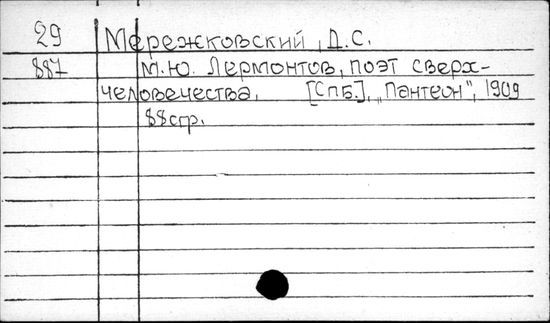 29 Мережковский, Д.С.
887 М.Ю. Лермонтов, поэт сверх-
человечества. [Спб.], „Пантеон", 1909
88стр.